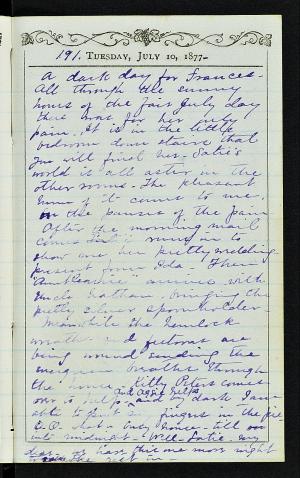 191. TUESDAY, JULY 10, 1877-
A dark day for Frances-
All through the sunny
hours of the fair July day
there was for her only
pain. It is in the little
bedroom down stairs that
you will find her. Satie's
world is all astir in the
other rooms - The pleasant
hum of it comes to me,
in the pauses of the pain
After the morning mail
comes Satie runs in to
show me her pretty wedding
present from Ida - Then
"Aunt arrives with
Uncle Nathan bringing the
pretty silver spoonholder
Meanwhile the hemlock
wreaths and festoons are
being wound sending the
evergreen breath through
the house. Kitty Peters comes
over to help and Aggie helps and by dark I am
able to put fingers in the pie
too - busy house - till
into midnight - Will - Satie - my
dear - to have this one more night
to the rest in